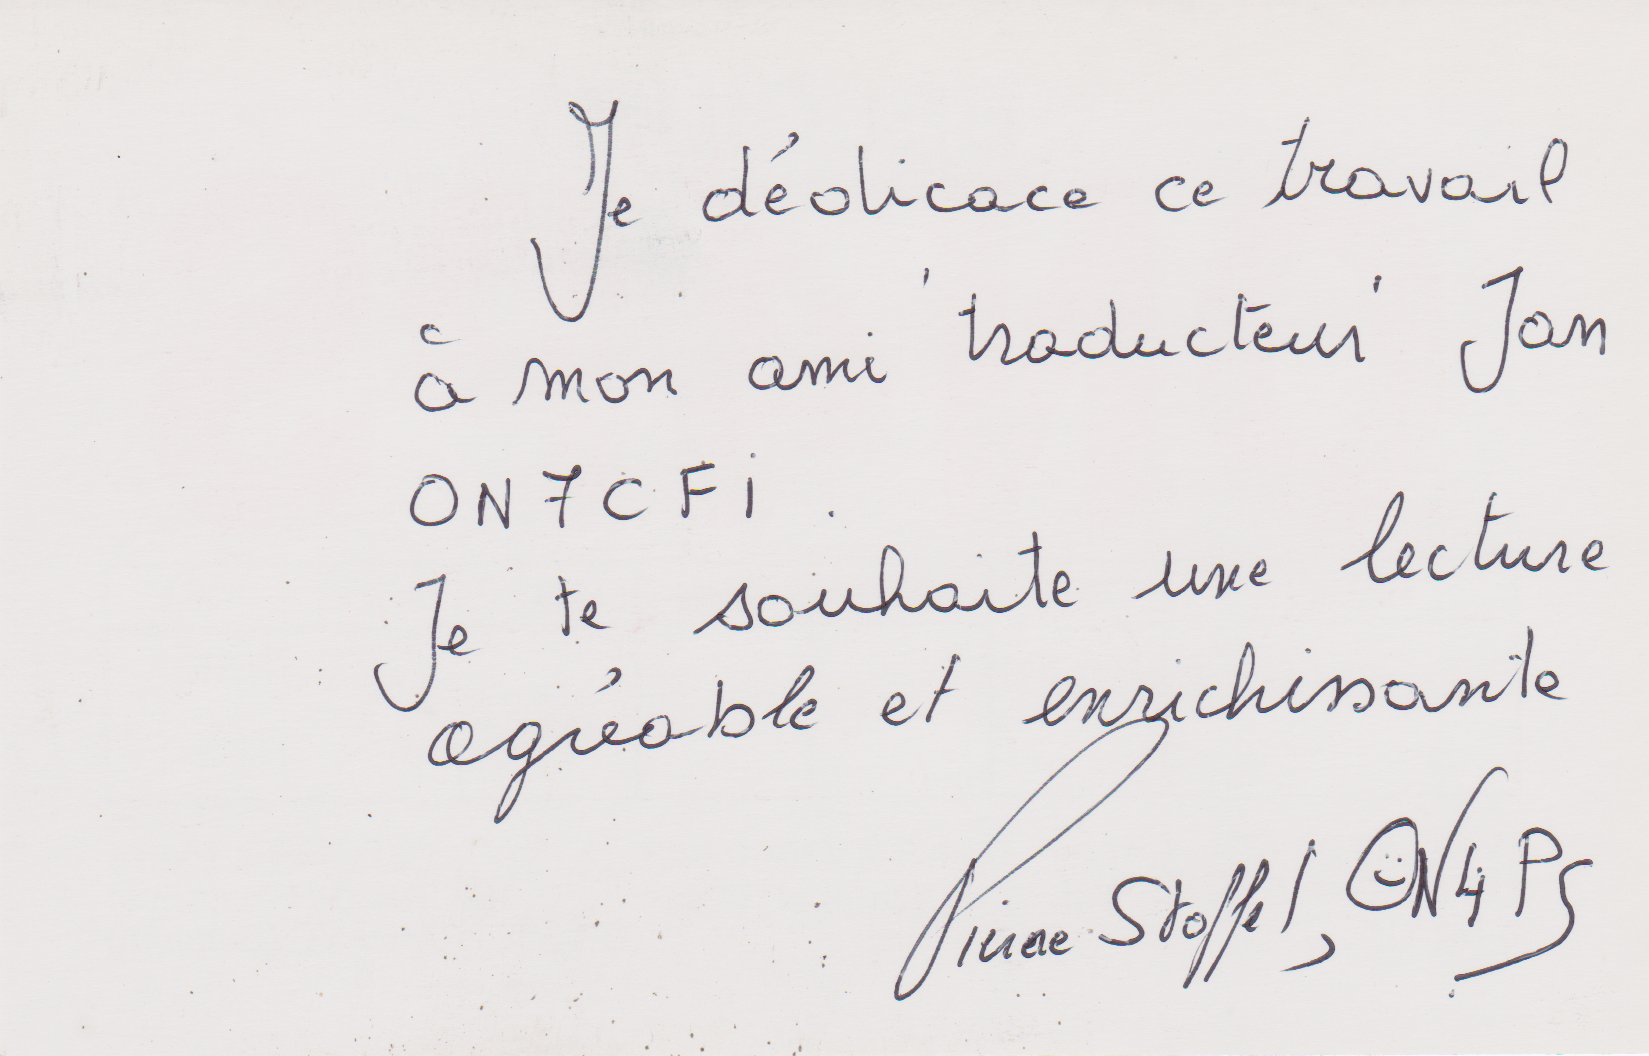 Je dédicace ce travail
à mon ami 'traducteur' Jan
ON7CFI.
Je te souhaite une lecture
agréable et enrichissante
Pierre Stoffel, ON4PS